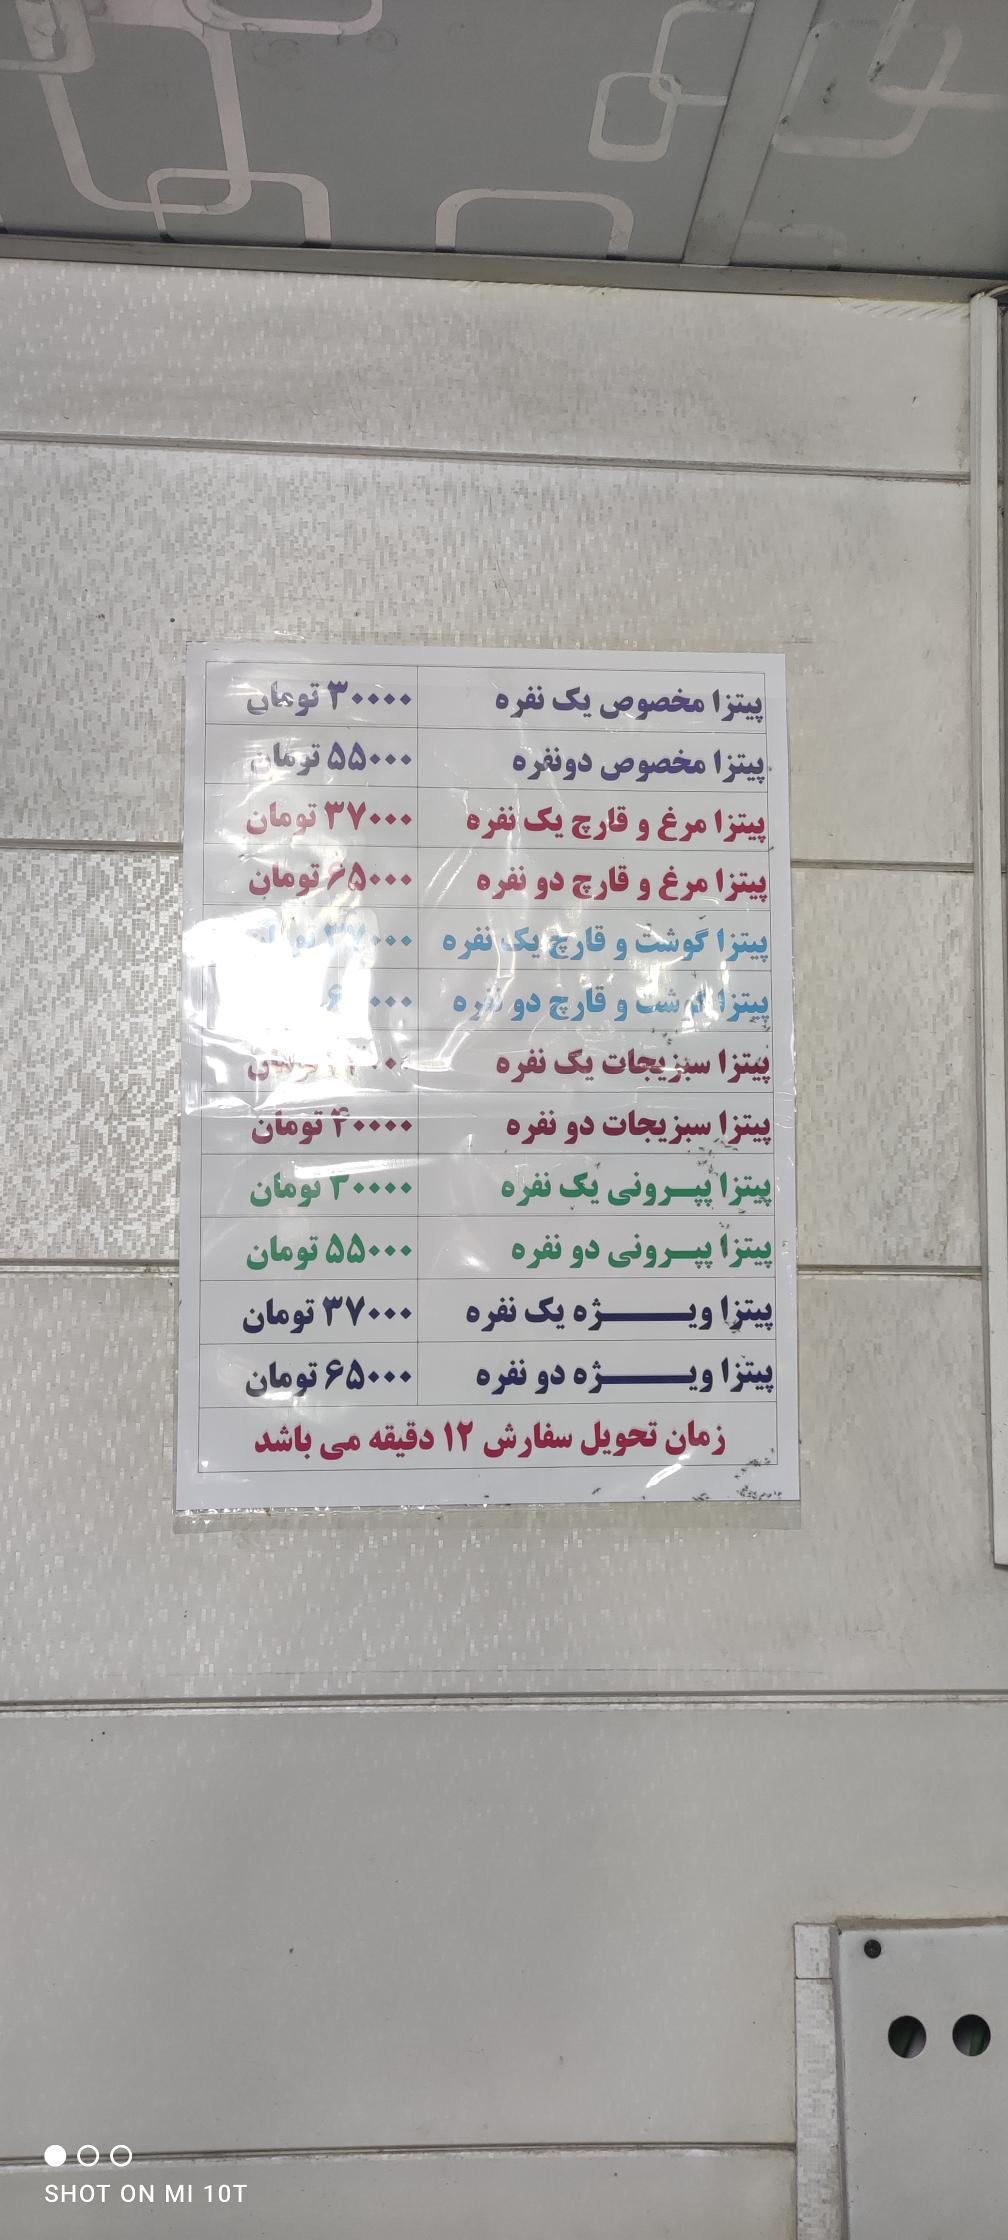 پیتزا مخصوص یک نفره ۳۰۰۰۰ تومان
پیتزا مخصوص دونفره ۵۵۰۰۰ تومان
پیتزا مرغ و قارچ یک نفره ۳۷۰۰۰ تومان
پیتزا مرغ و قارچ دو نفره ۶۵۰۰۰ تومان
پیتزا گوشت و قارچ یک نفره تومان
پیتزا گوشت و قارچ دو نفره
پیتزا سبزیجات یک نفره تومان
پیتزا سبزیجات دو نفره ۴۰۰۰۰ تومان
پیتزا پپــرونی یک نفره ۳۰۰۰۰ تومان
پیتزا پپــرونی دو نفره ۵۵۰۰۰ تومان
پیتزا ویـــــــژه یک نفره ۳۷۰۰۰ تومان
پیتزا ویـــــــژه دو نفره ۶۵۰۰۰ تومان
زمان تحویل سفارش ۱۲ دقیقه می باشد
SHOT ON MI 10T